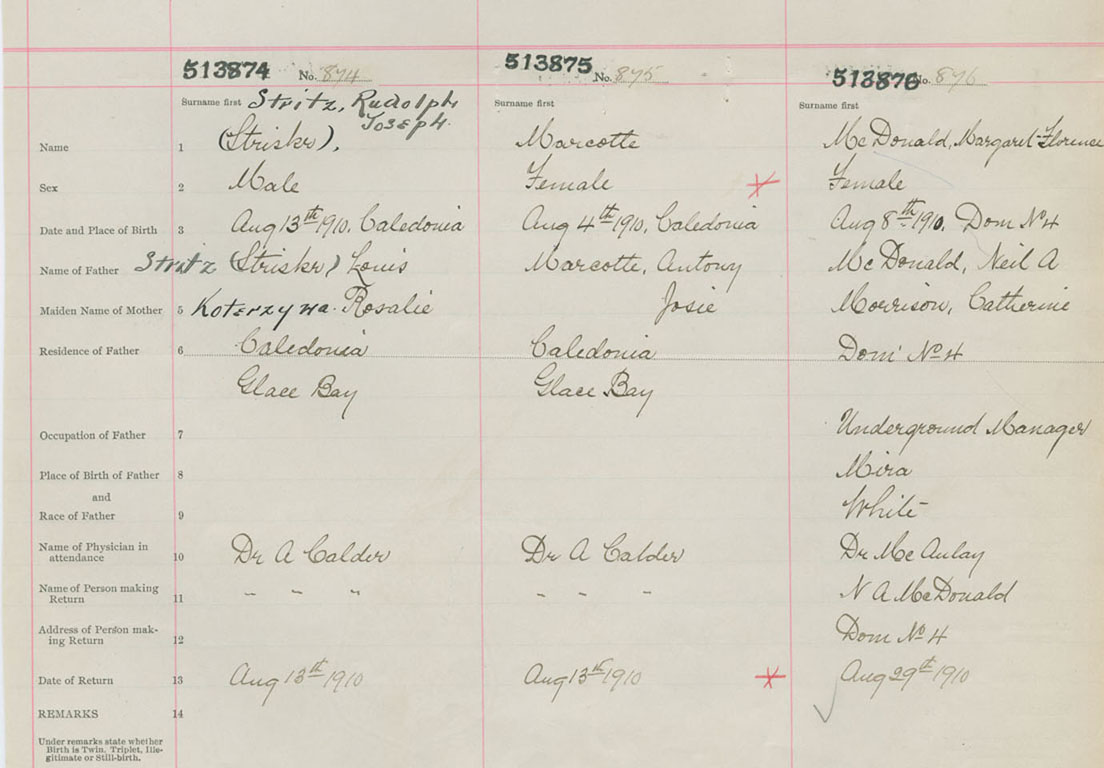 513874 No. 874 513875 No. 875 513876 No. 876
Surname first Stritz, Rudolph Surname first Surname first
Joseph.
Name 1 (Striskr), Marcotte McDonald, Margaret Florence
Sex 2 Male Female Female
Date and Place of Birth 3 Aug 13th 1910, Caledonia Aug 4th 1910, Caledonia Aug 8th 1910, Dom No 4
Name of Father Stritz (Striskr) Louis Marcotte, Antony McDonald, Neil A
Maiden Name of Mother 5 Koterzyna. Rosalie Josie Morrison, Catherine
Residence of Father 6 Caledonia Caledonia Dom No 4
Glace Bay Glace Bay
Occupation of Father 7 Underground Manager
Place of Birth of Father 8 Mira
and
Race of Father 9 White
Name of Physician in
attendance 10 Dr A Calder Dr A Calder Dr McAulay
Name of Person making
Return 11 " " " " " " N A McDonald
Address of Person mak-
ing Return 12 Dom No 4
Date of Return 13 Aug 13th 1910 Aug 13th 1910 Aug 29th 1910
REMARKS 14
Under remarks state whether
Birth is Twin, Triplet, Ille-
gitimate or Still-birth.